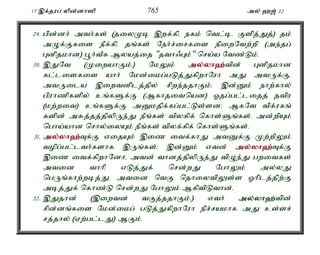 17 இக்தரப லின்னாஸி 765 அல் ஹஜ் 22
29. பின்னர் அவர்கள் (தலைமுடி இறக்கி, நகம் வெட்டி, குளித்துத்) தம்
அழுக்குகளை நீக்கி, தங்கள் நேர்ச்சைகளை நிறைவேற்றி (அந்தப்
புனிதமான) பூர்வீக ஆலயத்தை "தவாஃபும்" செய்ய வேண்டும்.
30. இதுவே (முறையாகும்.) மேலும் அல்லாஹ்வின் புனிதமான
கட்டளைகளை யார் மேன்மைப்படுத்துகிறாரோ அது அவருக்கு,
அவருடைய இறைவனிடத்தில் சிறந்ததாகும்; இன்னும் நாற்கால்
பிராணிகளில் உங்களுக்கு (ஆகாதவையென) ஓதப்பட்டதைத் தவிர
(மற்றவை) உங்களுக்கு அனுமதிக்கப்பட்டுள்ளன; ஆகவே விக்ரகங்
களின் அசுத்தத்திலிருந்து நீங்கள் விலகிக் கொள்ளுங்கள். அன்றியும்
பொய்யான சொல்லையும் நீங்கள் விலக்கிக் கொள்ளுங்கள்.
31. அல்லாஹ்வுக்கு எதையும் இணை வைக்காது அவனுக்கு முற்றிலும்
வழிப்பட்டவர்களாக இருங்கள்; இன்னும் எவன் அல்லாஹ்வுக்கு
இணை வைக்கிறானோ, அவன் வானத்திலிருந்து விழுந்து பறவைகள்
அவனை வாரி எடுத்துச் சென்றது போலும் அல்லது
பெருங்காற்றடித்து, அவனை வெகு தொலைவிலுள்ள ஓரிடத்திற்கு
அடித்துக் கொண்டு சென்றது போலும் ஆகிவிடுவான்.
32. இதுதான் (இறைவன் வகுத்ததாகும்.) எவர் அல்லாஹ்வின்
சின்னங்களை மேன்மைப் படுத்துகிறாரோ நிச்சயமாக அது உள்ளச்
சத்தால் (ஏற்பட்டது) ஆகும்.